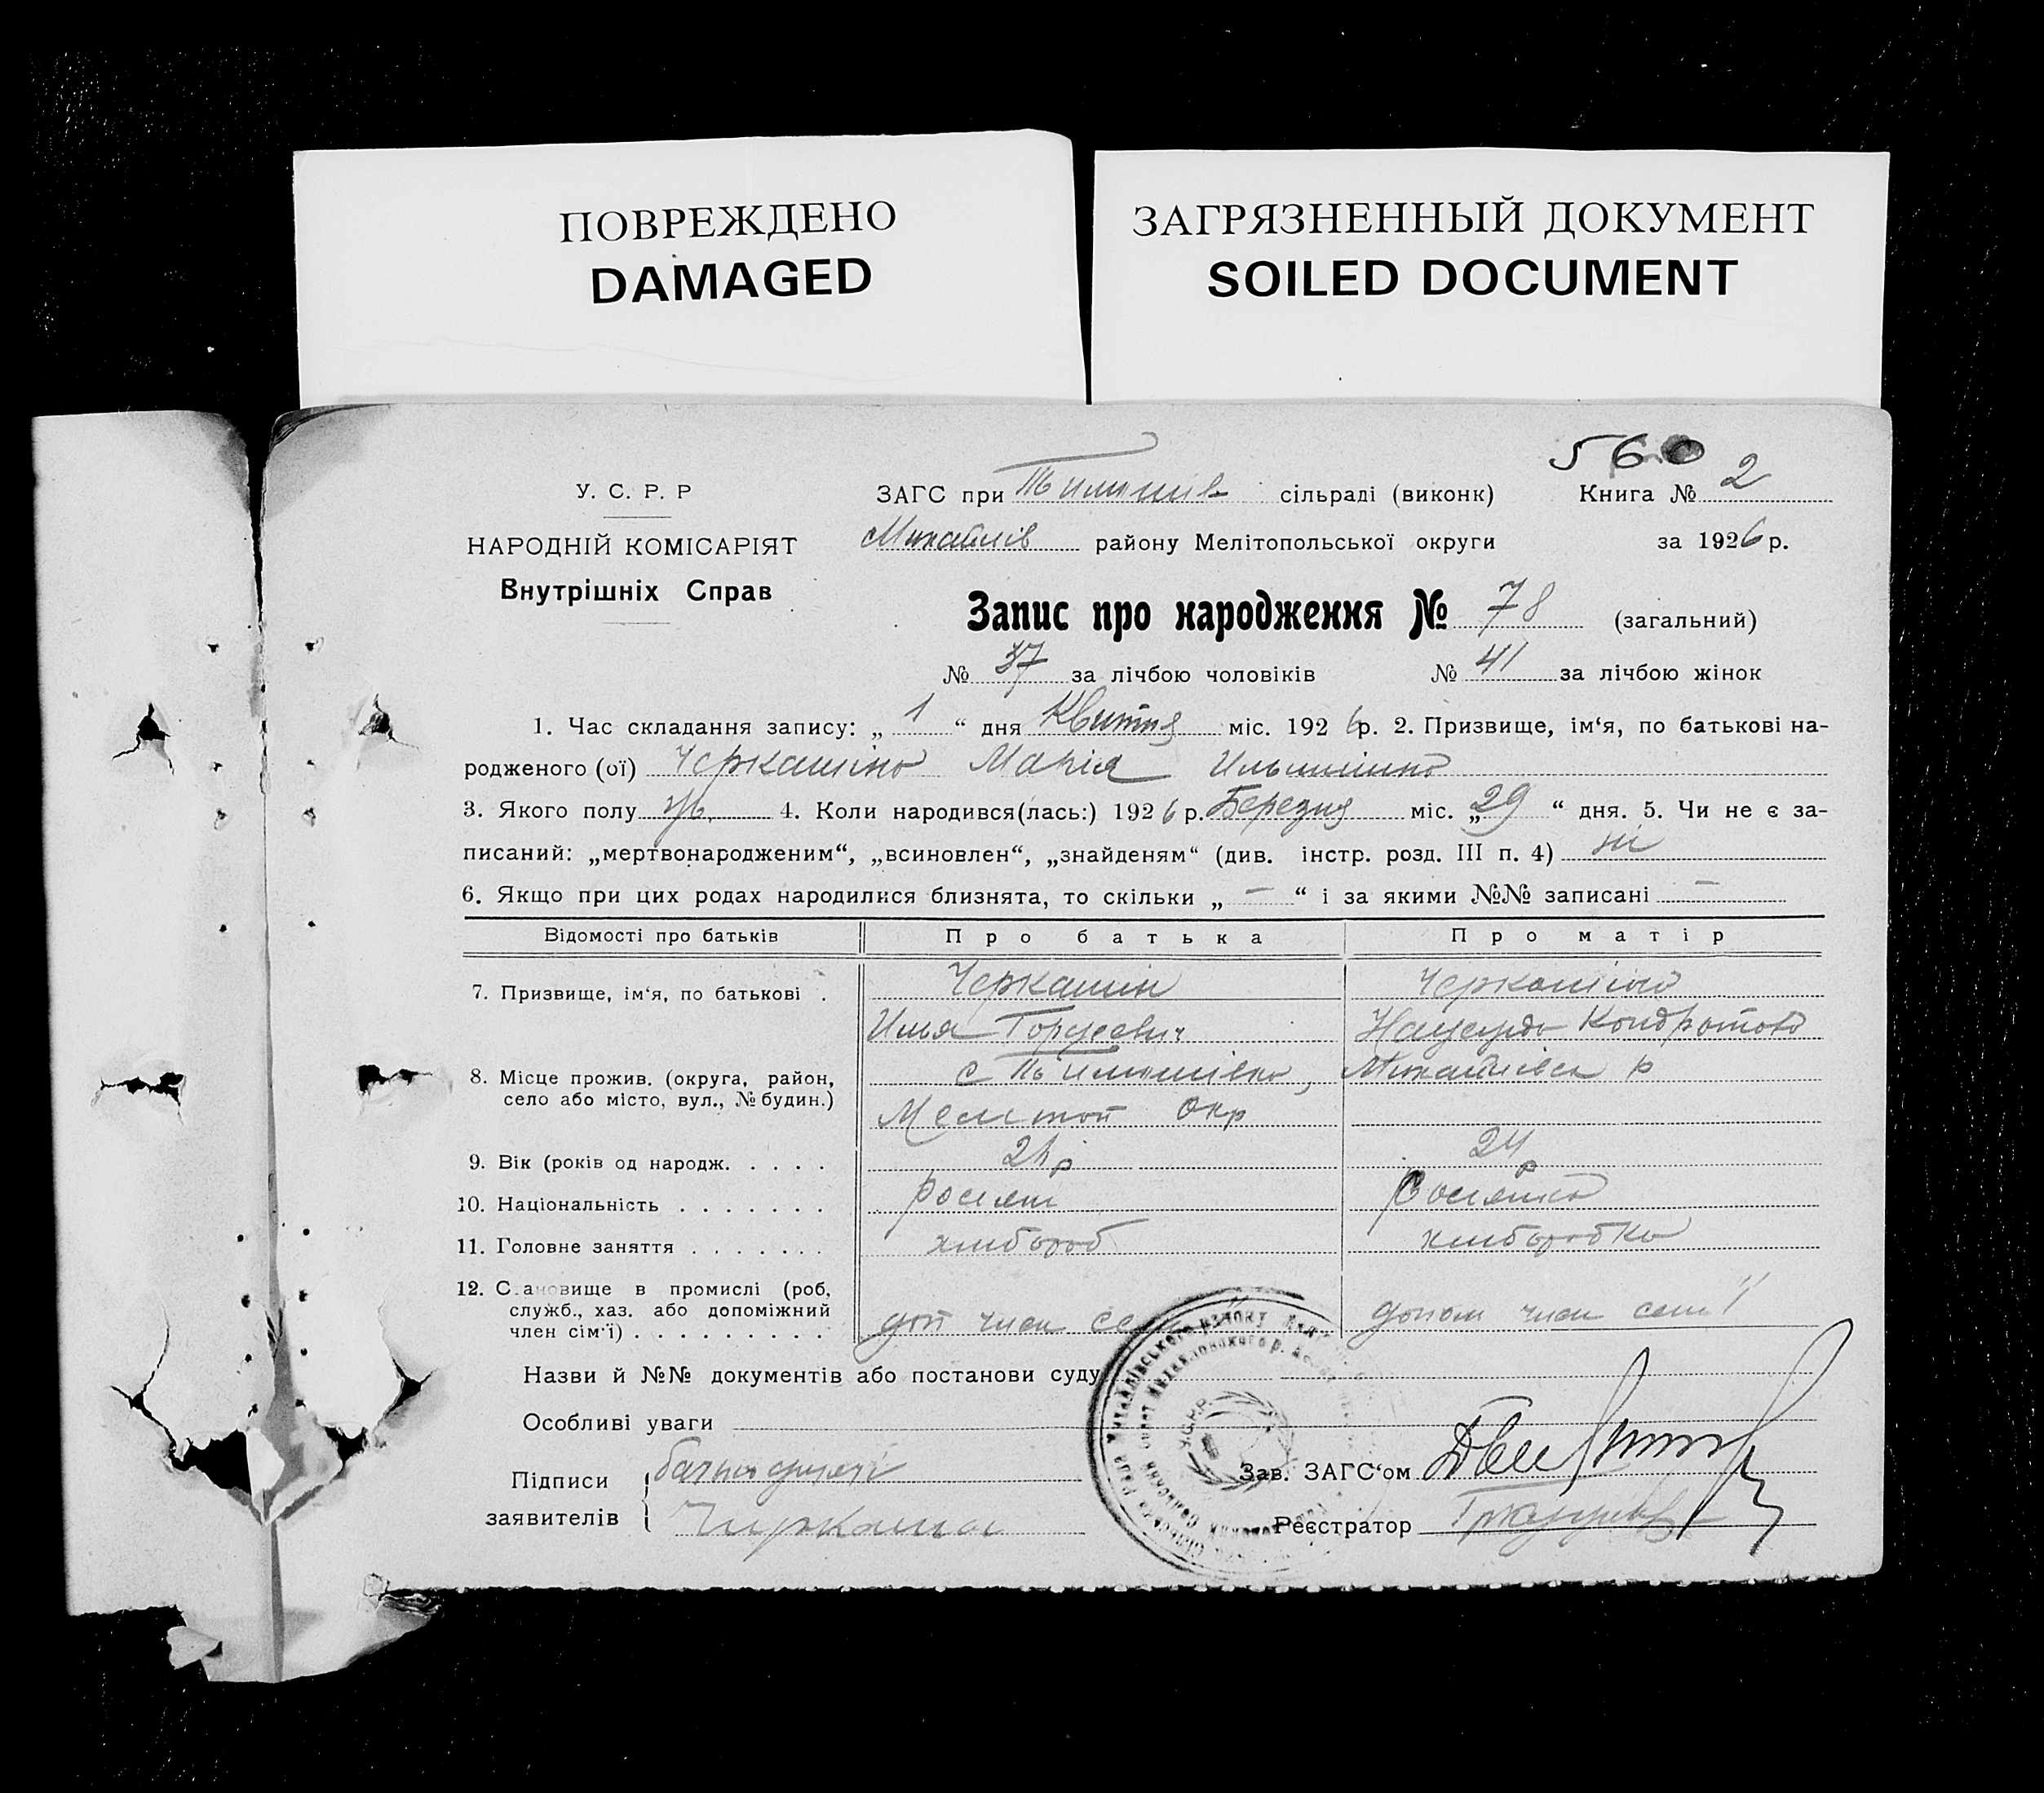 ПОВРЕЖДЕНО
DAMAGED
ЗАГРЯЗНЕННЫЙ ДОКУМЕНТ
SOILED DOCUMENT
560
У. С. Р. Р
НАРОДНІЙ КОМІСАРІЯТ
Внутрішніх Справ
ЗАГС при сільраді (виконк) Книга № 2
Михайлів району Мелітопольської округи за 1926 р.
Запис про народження № 78 (загальний)
№ 37 за лічбою чоловіків № 41 за лічбою жінок
1. Час складання запису: „ 1 “ дня Квітня міс. 1926 р. 2. Призвище, ім‘я, по батькові на-
родженого (ої) Черкашіна Марія Ильинішна
3. Якого полу ж. 4. Коли народився(лась:) 1926 р. Березня міс. „ 29 “ дня. 5. Чи не є за-
писаний: „мертвонародженим“, „всиновлен“, „знайденям“ (див. інстр. розд. III п. 4) ні
6. Якщо при цих родах народилися близнята, то скільки „ — “ і за якими №№ записані —
Відомості про батьків Про батька Про матір
7. Призвище, ім‘я, по батькові . Черкашин Черкашіна
Илья Гордеевич Кондратова
8. Місце прожив. (округа, район, село або місто, вул., № будин.) с Тимошівка, Михайлівськ р
Мелитоп Окр
9. Вік (років од народж. . . . . р 24 р
10. Національність . . . . . . . росіян Росіянка
11. Головне заняття . . . . . . . хлибороб хлиборобка
12. Становище в промислі (роб, служб., хаз. або допоміжний член сім‘ї) . . . . . . . . . доп член сем допом член семї
Назви й №№ документів або постанови суду
Особливі уваги
Підписи
заявителів
Зав. ЗАГС‘ом
Реєстратор
У.С.Р.Р.